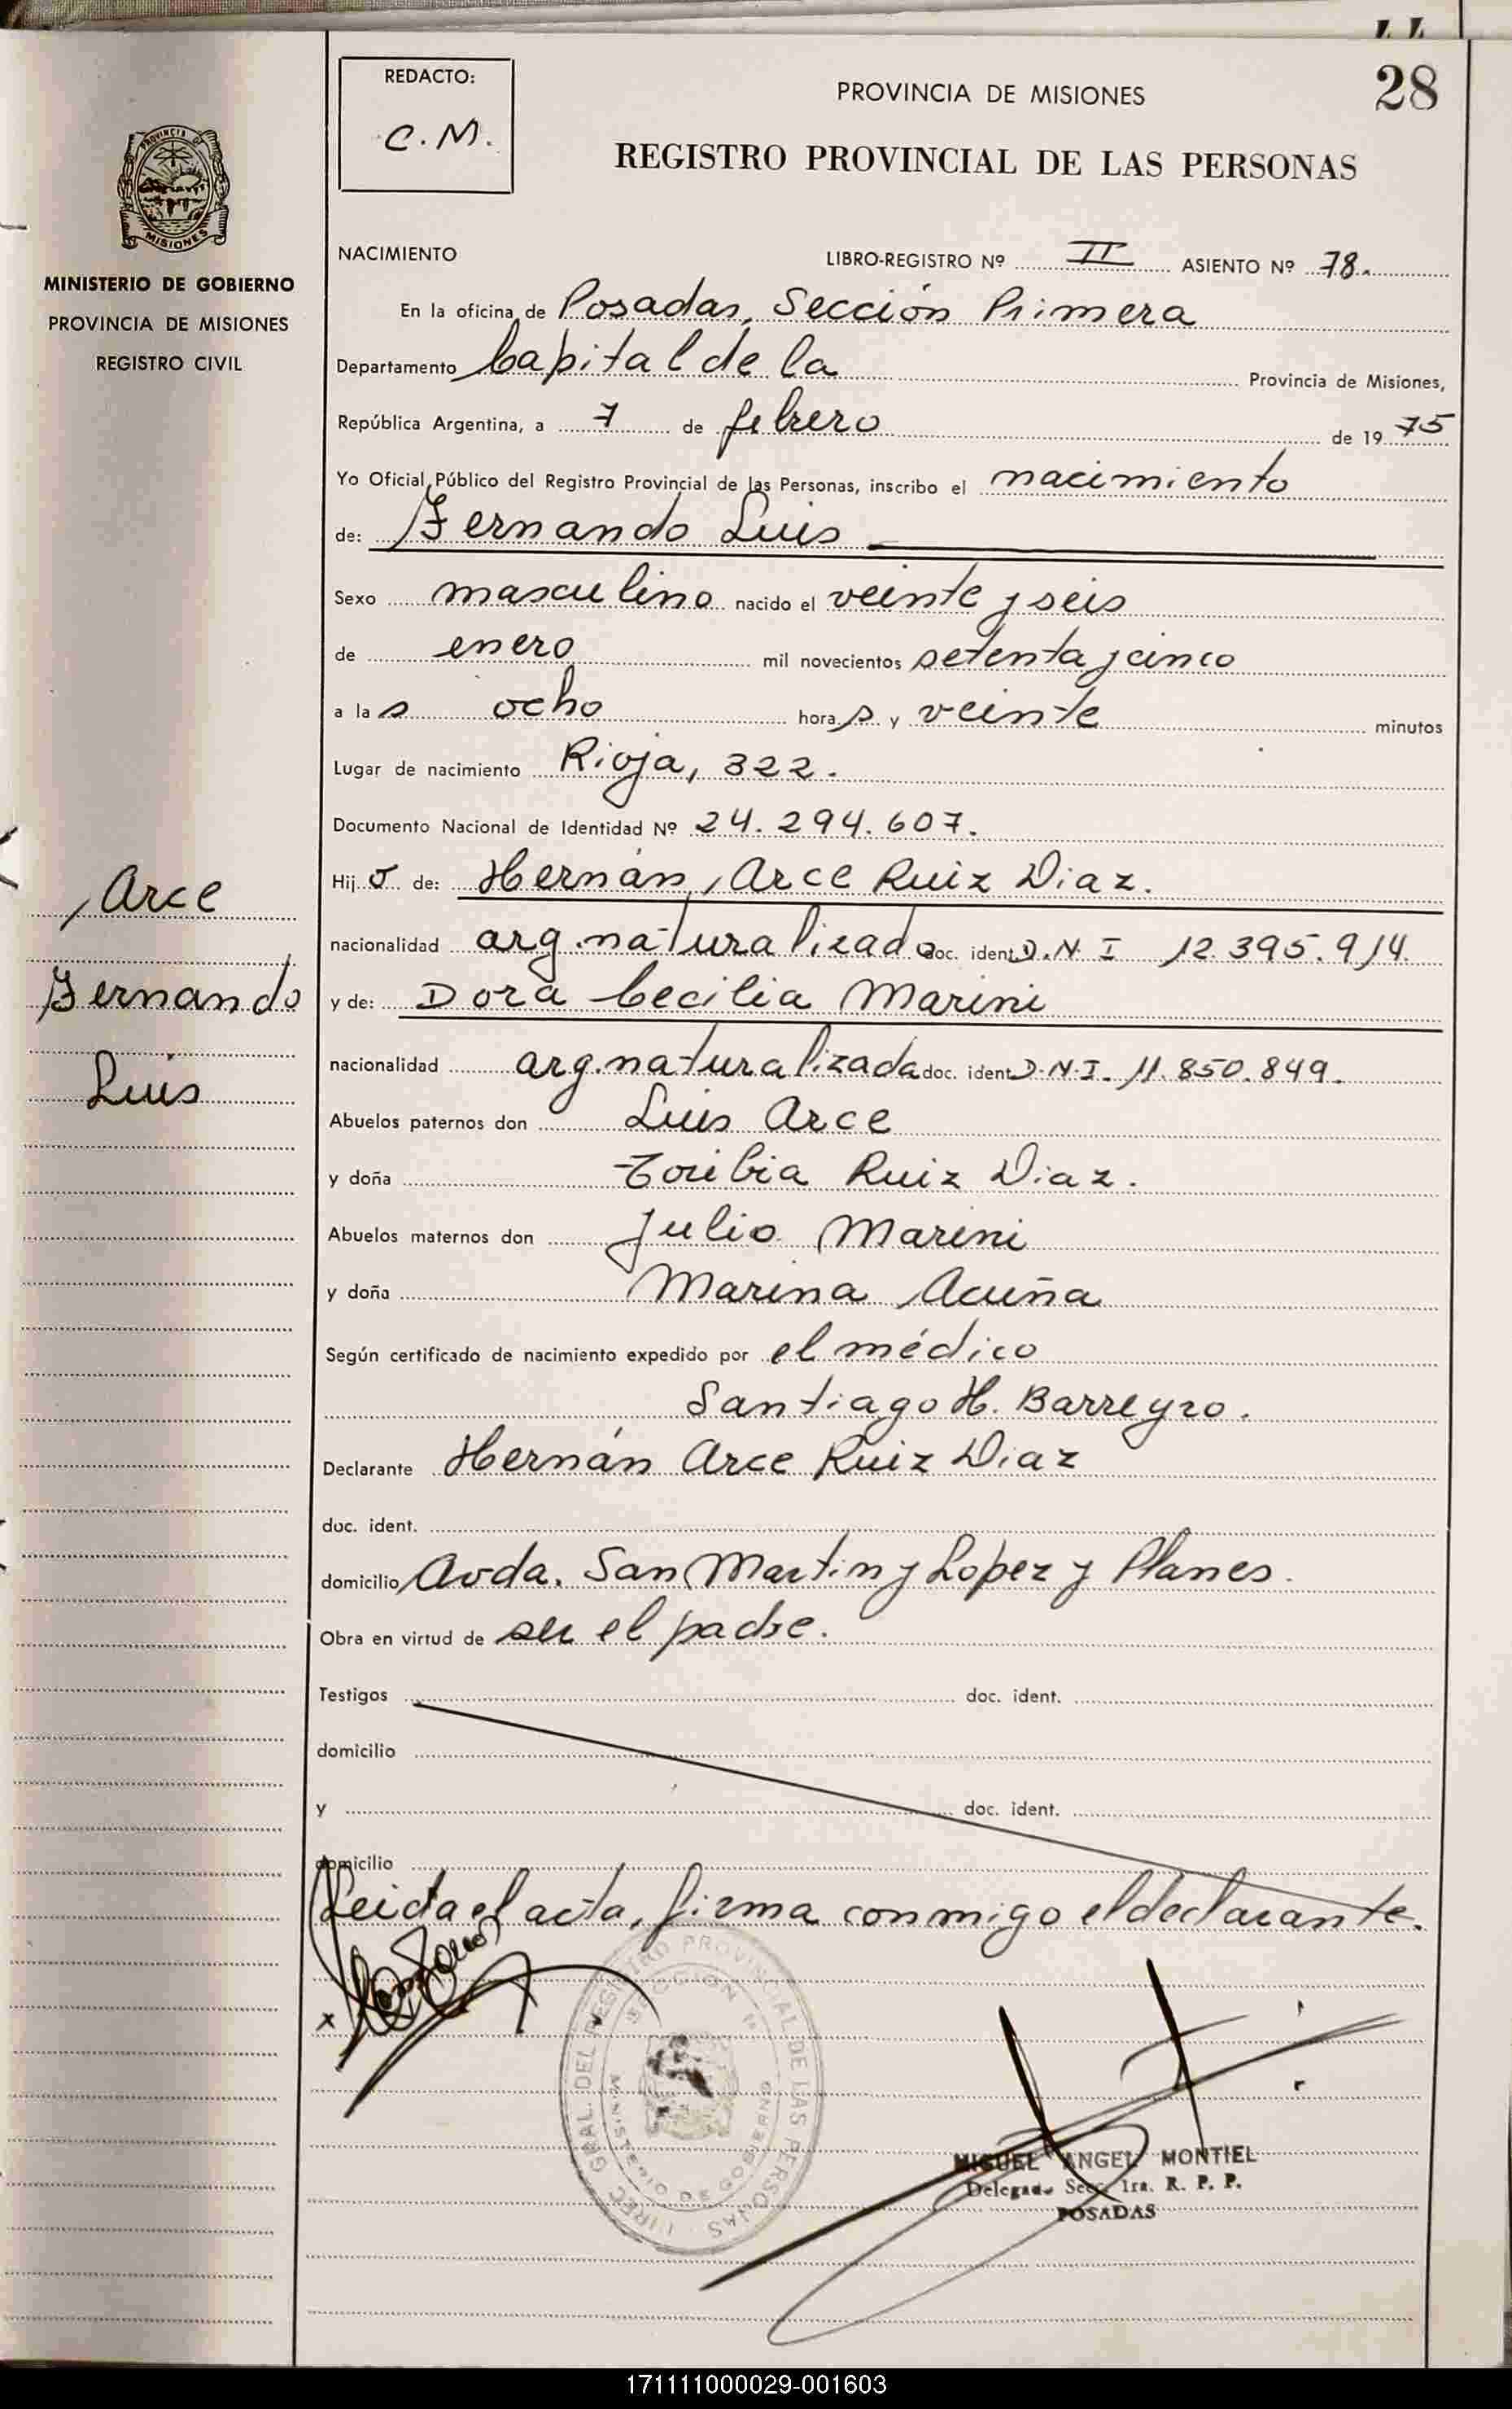 28
REDACTO:
C.M.
PROVINCIA DE MISIONES
REGISTRO PROVINCIAL DE LAS PERSONAS
PROVINCIA DE
MISIONES
MINISTERIO DE GOBIERNO
PROVINCIA DE MISIONES
REGISTRO CIVIL
NACIMIENTO LIBRO-REGISTRO Nº II ASIENTO Nº 78.
En la oficina de Posadas, Sección Primera
Departamento Capital de la Provincia de Misiones,
República Argentina, a 7 de febrero de 1975
Yo Oficial Público del Registro Provincial de las Personas, inscribo el nacimiento
de: Fernando Luis
Sexo masculino nacido el veinte y seis
de enero mil novecientos setenta y cinco
a las ocho horas y veinte minutos
Lugar de nacimiento Rioja, 322.
Documento Nacional de Identidad Nº 24.294.607.
Hijo de: Hernán Arce Ruiz Diaz.
nacionalidad arg. naturalizado doc. ident. D.N.I 12.395.914.
y de: Dora Cecilia Marini
nacionalidad arg. naturalizada doc. ident. D.N.I. 11.850.849.
Abuelos paternos don Luis Arce
y doña Toribia Ruiz Diaz.
Abuelos maternos don Julio Marini
y doña Marina Acuña
Según certificado de nacimiento expedido por el médico
Santiago H. Barreyro.
Declarante Hernán Arce Ruiz Diaz
doc. ident.
domicilio Avda. San Martin y Lopez y Planes.
Obra en virtud de ser el padre.
Testigos doc. ident.
domicilio
y doc. ident.
domicilio
Leida el acta, firma conmigo el declarante.
Arce
Fernando
Luis
x
DIREC. GRAL. DEL REGISTRO PROVINCIAL DE LAS PERSONAS
SECCION 1ª
MINISTERIO DE GOBIERNO
MIGUEL ANGEL MONTIEL
Delegado Secc. 1ra. R. P. P.
POSADAS
171111000029-001603